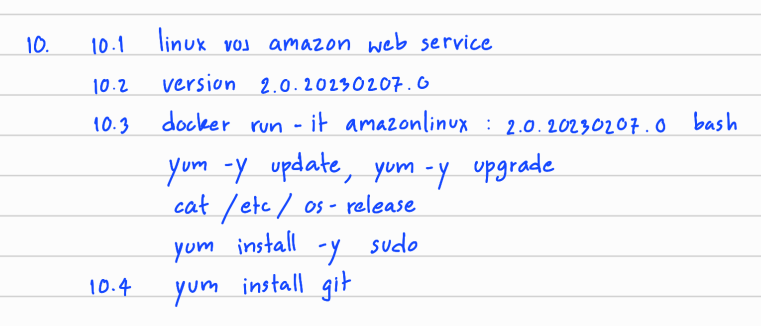 10. 10.1 linux ของ amazon web service
10.2 version 2.0.20230207.0
10.3 docker run -it amazonlinux : 2.0.20230207.0 bash
yum -y update, yum -y upgrade
cat /etc/ os-release
yum install -y sudo
10.4 yum install git